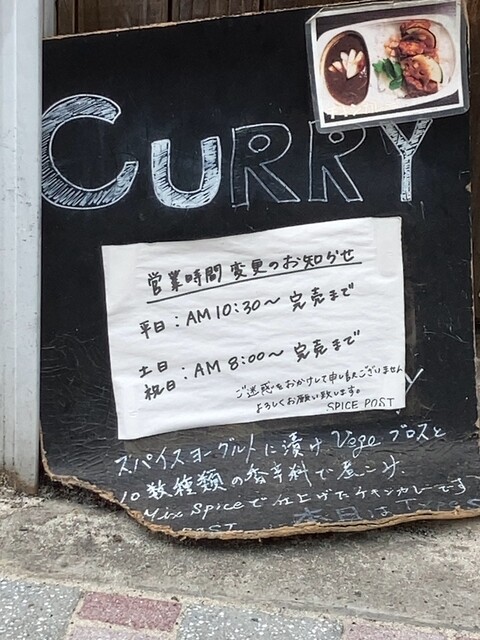 CURRY
営業時間変更のお知らせ
平日：AM10:30～ 完売まで
土日
祝日：AM 8:00～ 完売まで
ご迷惑をおかけして申し訳ございません
よろしくお願い致します。
SPICE POST
スパイスヨーグルトに漬け Vege ブロスと
10数種類の香辛料で煮こみ
Mix Spiceで仕上げたチキンカレーです
本日は